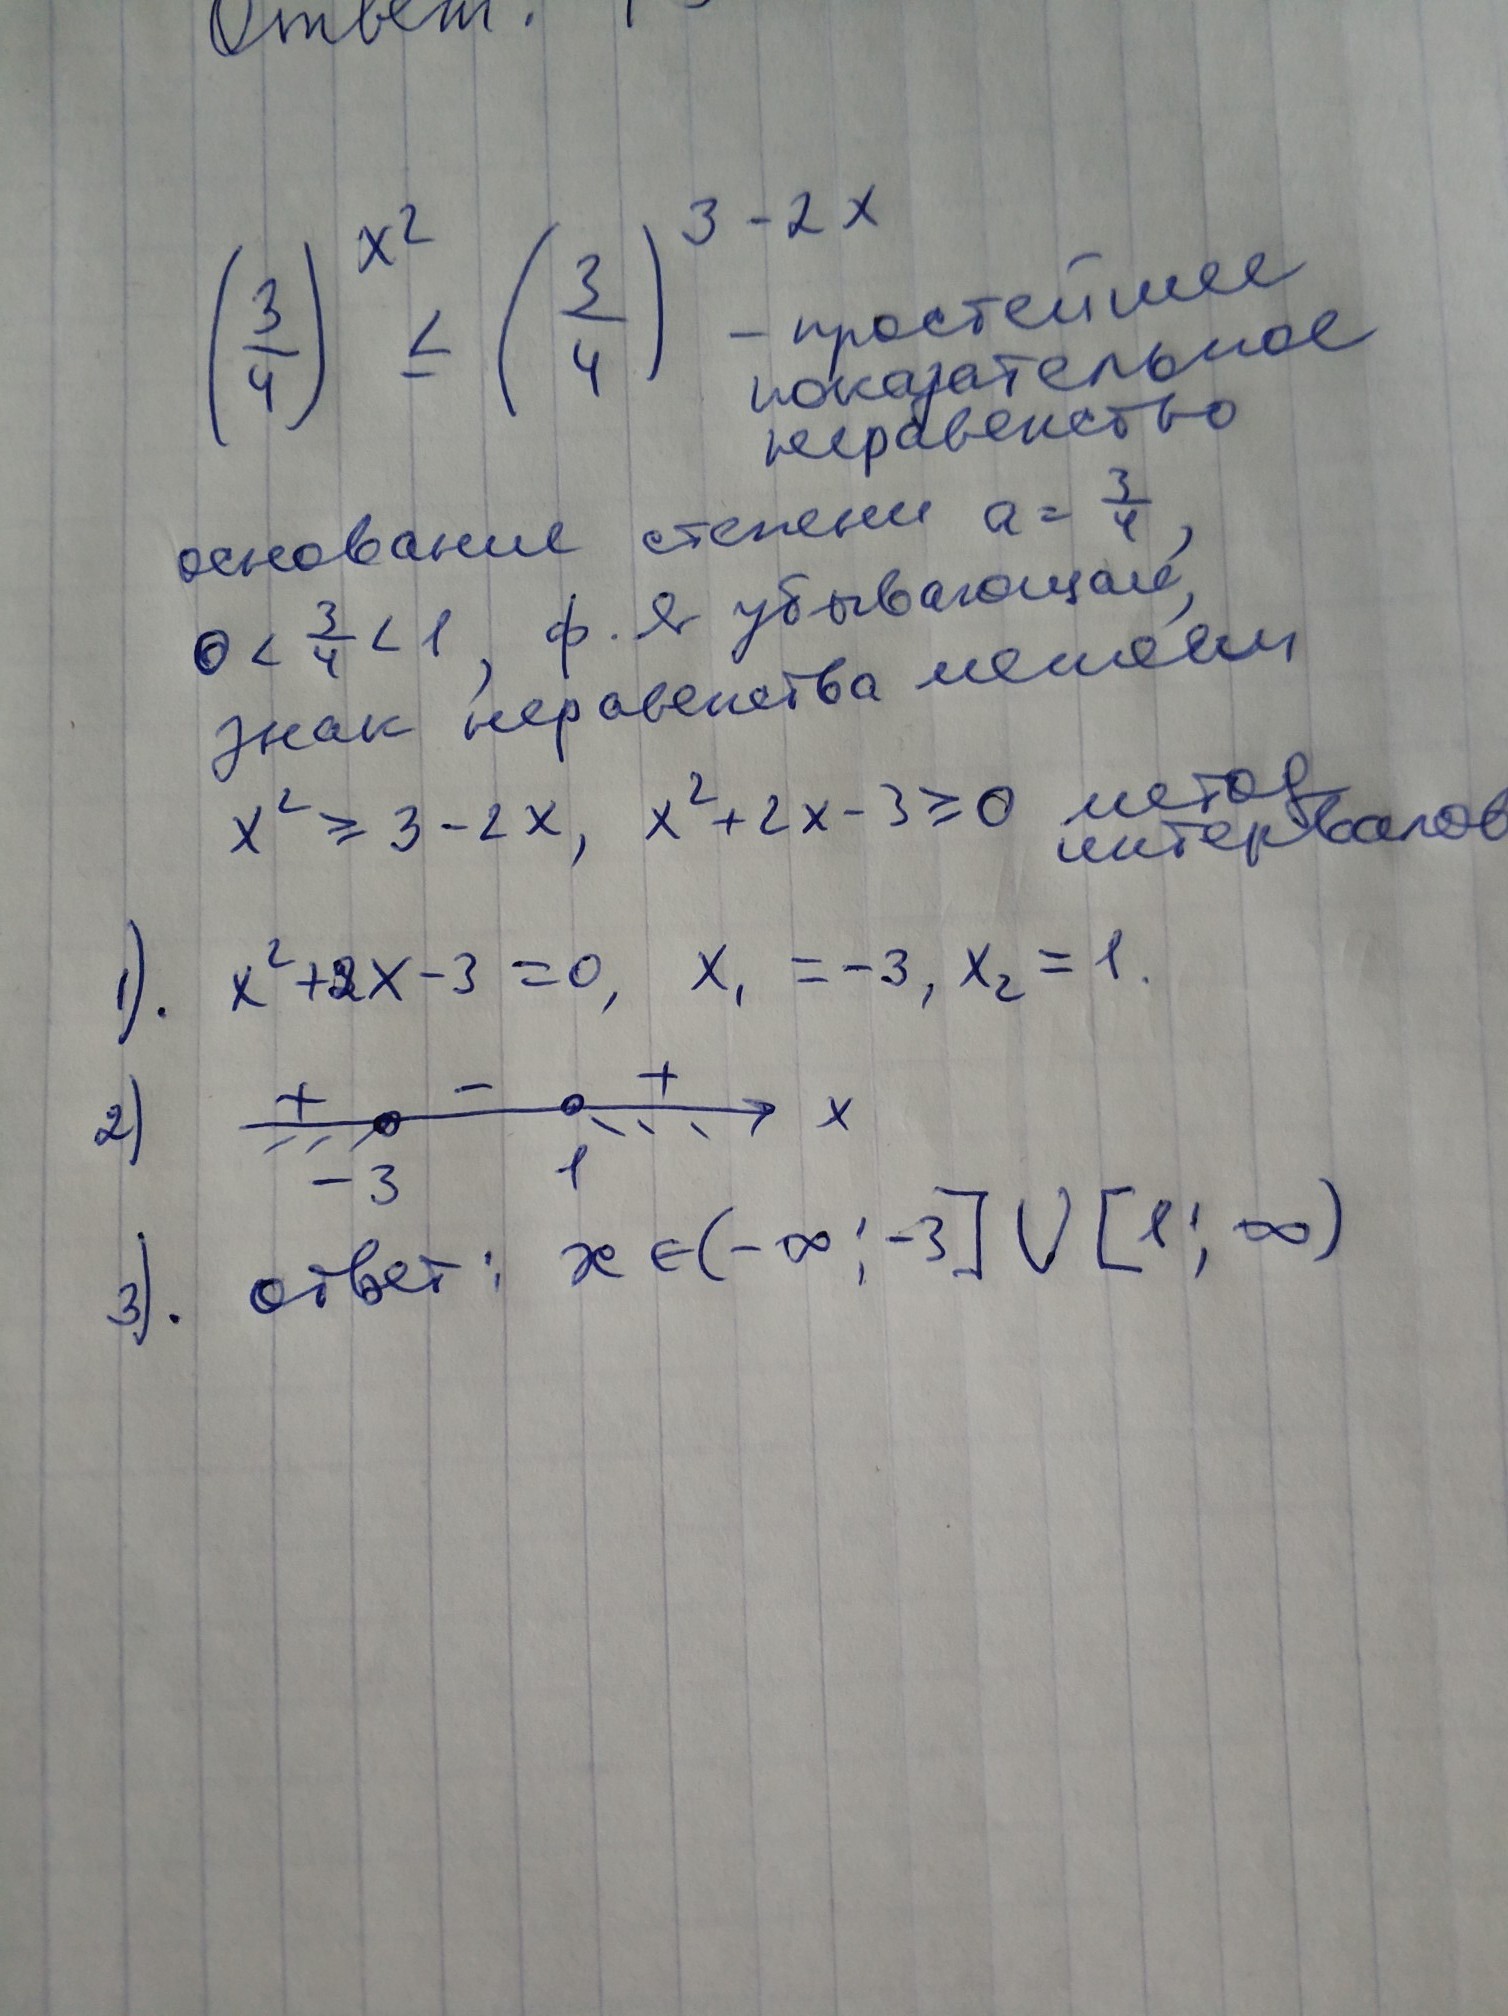 Ответ:
(3/4)^x² ≤ (3/4)^3-2x – простейшее
показательное
неравенство
основание степени a = 3/4,
0 < 3/4 < 1, ф. я убывающая,
знак неравенства меняем
x² ≥ 3 - 2x, x² + 2x - 3 ≥ 0 метод
интервалов
1). x² + 2x - 3 = 0, x₁ = -3, x₂ = 1.
2) + - + x
-3 1
3). ответ: x ∈ (-∞; -3] ∪ [1; ∞)